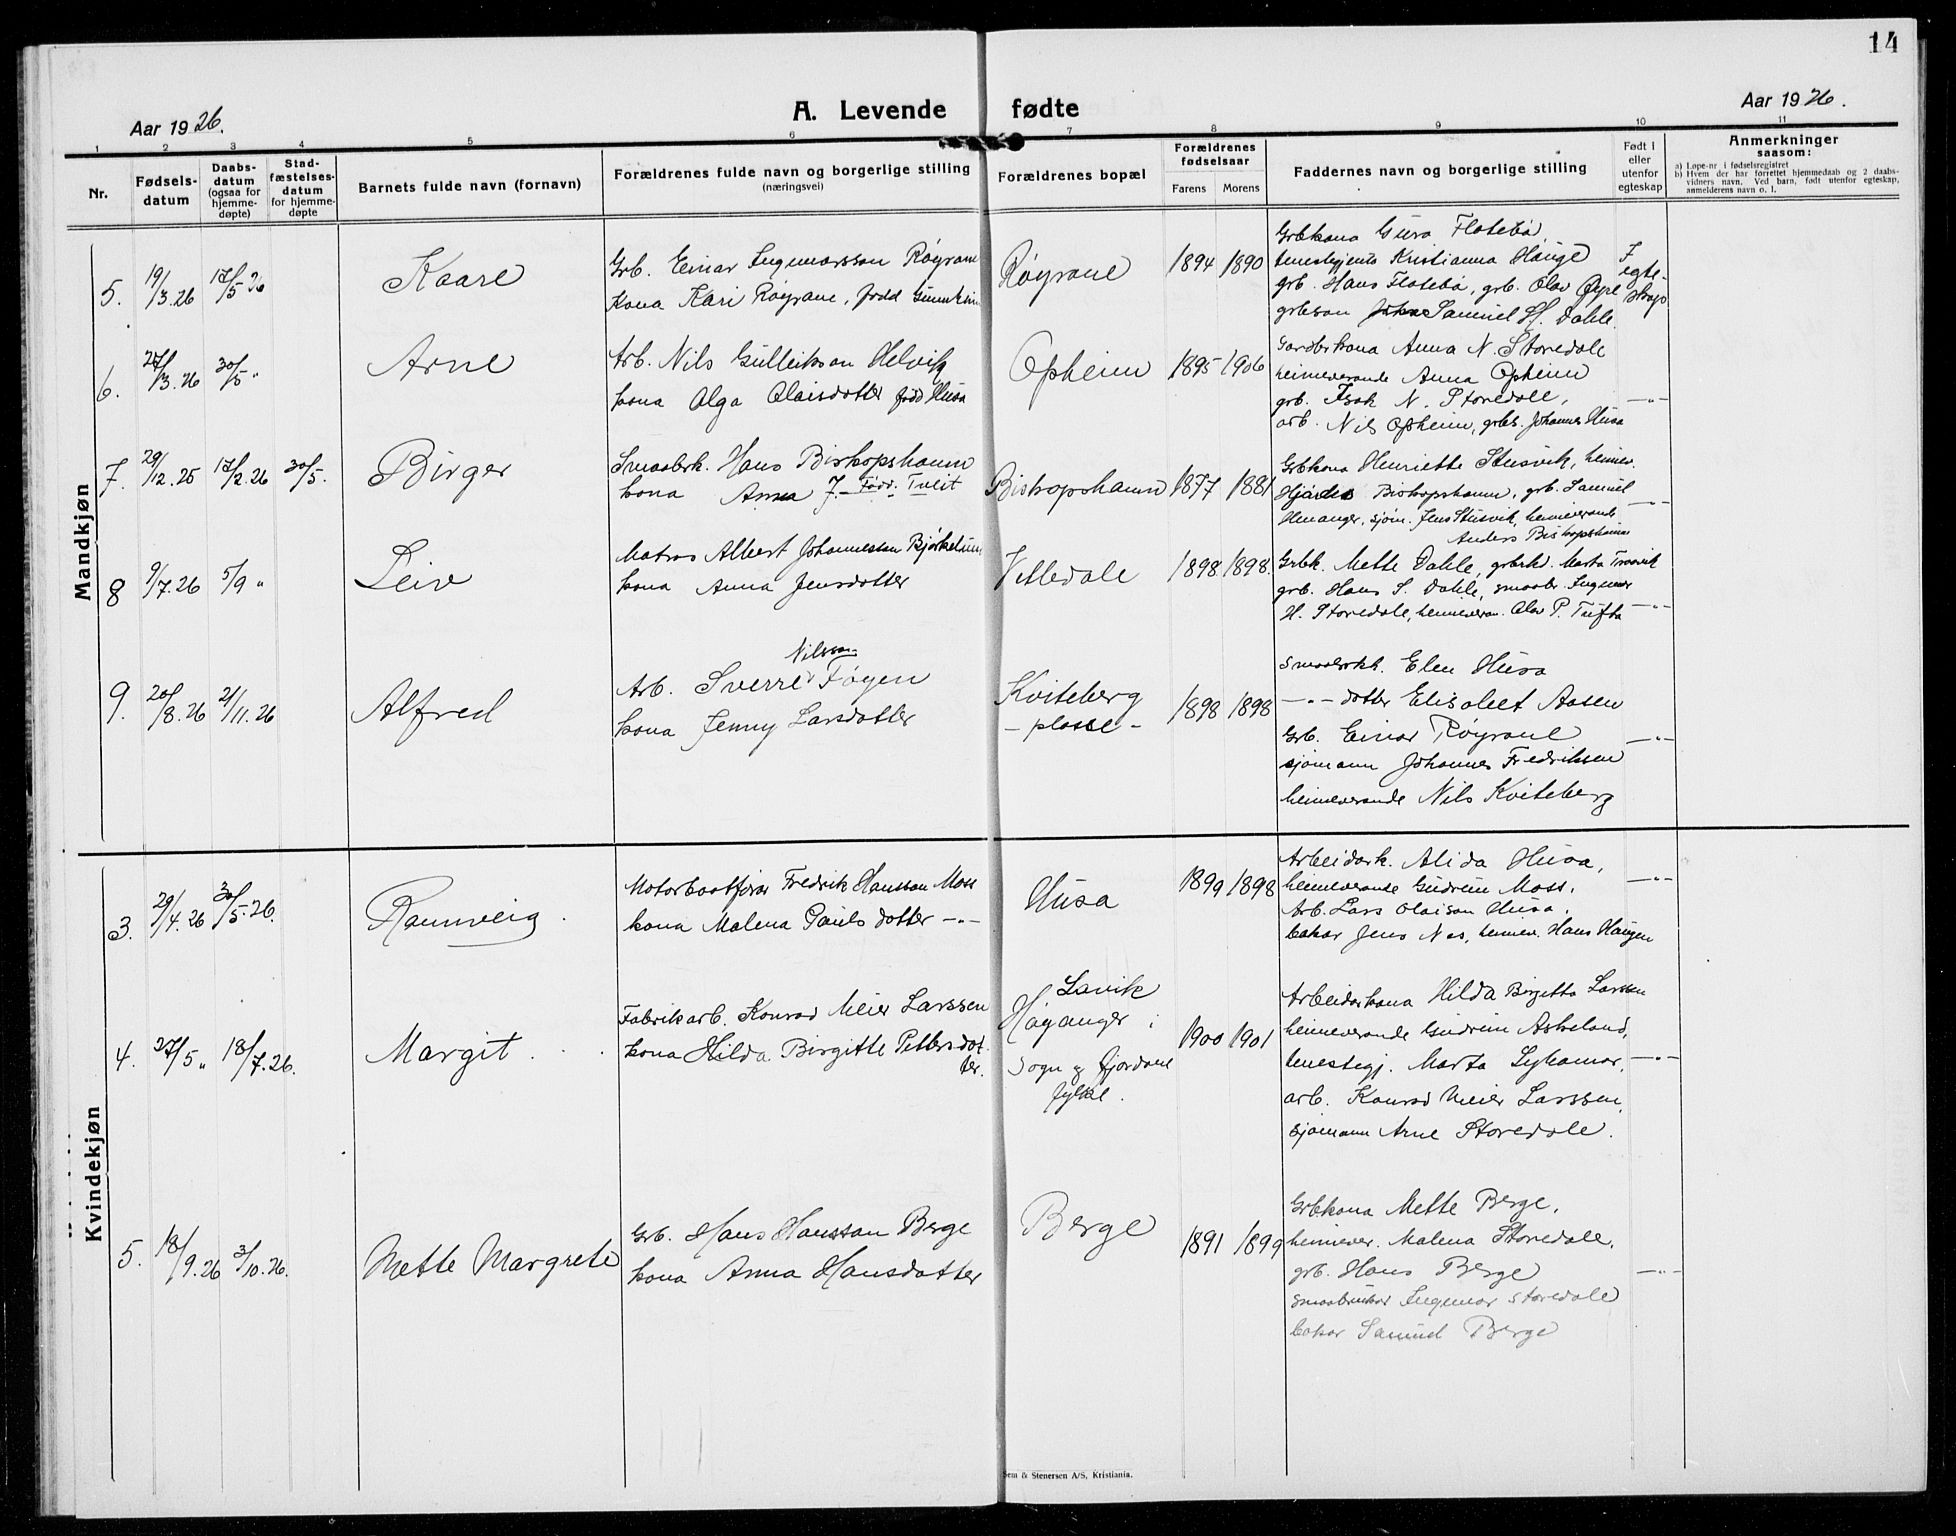 14
Aar 1926.
A. Levende fødte
Aar 1926.
1 2 3 4 5 6 7 8 9 10 11
Nr.
Fødsels-
datum
Daabs-
datum
(ogsaa for
hjemme-
døpte)
Stad-
fæstelses-
datum
for hjemme-
døpte
Barnets fulde navn (fornavn)
Forældrenes fulde navn og borgerlige stilling
(næringsvei)
Forældrenes bopæl
Forældrenes
fødselsaar
Farens Morens
Faddernes navn og borgerlige stilling
Født i
eller
utenfor
egteskap
Anmerkninger
saasom:
a) Løpe-nr i fødselsregistret
b) Hvem der har forrettet hjemmedaab og 2 daabs-
vidners navn. Ved barn, født utenfor egteskap,
anmelderens navn o. l.
Mandkjøn
5. 19/3.26 17/5 26 Kaare
Grb. Einar Ingemarsson Røyrane
Kona Kari Røyrane, fødd
Røyrane 1894 1890
Grbkona Guro Flotebø,
tenestgjenta Kristianna Hauge
grb. Hans Flotebø, grb. Olav Øyre
grbson Samuel H. Dahle.
I
egte-
skap
6. 27/3.26 30/5 " Arne
Arb. Nils Gulleikson Helvik
kona Olga Olaisdotter fødd Husa
Opheim 1895 1906
Gardbrkona Anna N. Storedale
heimeverande Anna Opheim
grb. Isak N. Storedale,
arb. Nils Opheim, grbs. Johannes Husa
—"—
7. 29/12.25 17/2.26 30/5. Birger
Smaabrk. Hans Biskopshamn
kona Anna J. Fødd. Tveit
Biskopshamn 1877 1881
Grbkona Henriette Stusvik, heimev.
Biskopshamn, grb. Samuel
Omanger, sjøm. Jens Stusvik, heimeverande
Anders Biskopshamn
—"—
8 9/7.26 5/9 " Leiv
Matros Albert Johannesson
kona Anna Jensdotter
Vetledale 1898 1898.
Grbk. Mette Dahle, grbrk. Marta
grb. Hans S. Dahle, smaabr. Ingemar
H. Storedale, heimeveran. Olav P. Tufta
—"—
9. 20/8.26 21/11.26 Alfred
Nilsson
Arb. Sverre Føyen
kona Jenny Larsdotter
Kviteberg
- plasse -
1898 1898
Smaabrkk. Elen Husa
—"— dotter Elisabet Aasen
Grb. Einar Røyrane
sjømann Johannes Fredriksen
heimeverande Nils Kviteberg
—"—
Kvindekjøn
3. 29/4.26 30/5.26. Rannveig.
Motorbaatførar Fredrik Hansson Moss
kona Malena Paulsdotter —"—
Husa 1899 1898
Arbeidark. Alida Husa,
heimeverande Gudrun Moss,
Arb. Lars Olaison Husa,
bakar Jens Nes, heimev. Hans Haugen
—"—
4. 27/5 " 18/7.26. Margit
Fabrikarb. Konrad Meier Larssen
kona Hilda Birgitte Pettersdot
ter.
Lavik
Høyanger i
Sogn og fjordane
fylke.
1900 1901
Arbeidarkona Hilda Birgitta Larssen
heimeverande Gudrun Askeland,
tenestgj. Marta Lykamar,
arb. Konrad Meier Larssen,
sjømann Arne Storedale.
—"—
5. 18/9.26 3/10.26. Mette Margrete
Grb. Hans Hansson Berge
kona Anna Hansdotter
Berge 1891 1899
Grbkona Mette Berge,
heimever. Malena Storedale,
grb. Hans Berge
smaabrukar Ingemar Storedale
bakar Samuel Berge
—"—
Sem & Stenersen A/S, Kristiania.